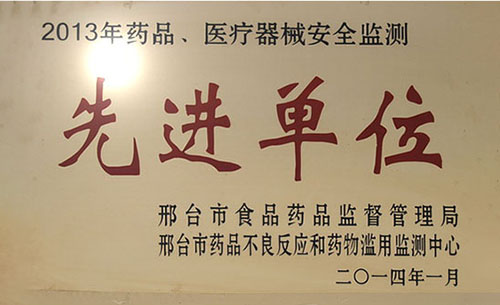 2013年药品、医疗器械安全监测
先进单位
邢台市食品药品监督管理局
邢台市药品不良反应和药物滥用监测中心
二〇一四年一月